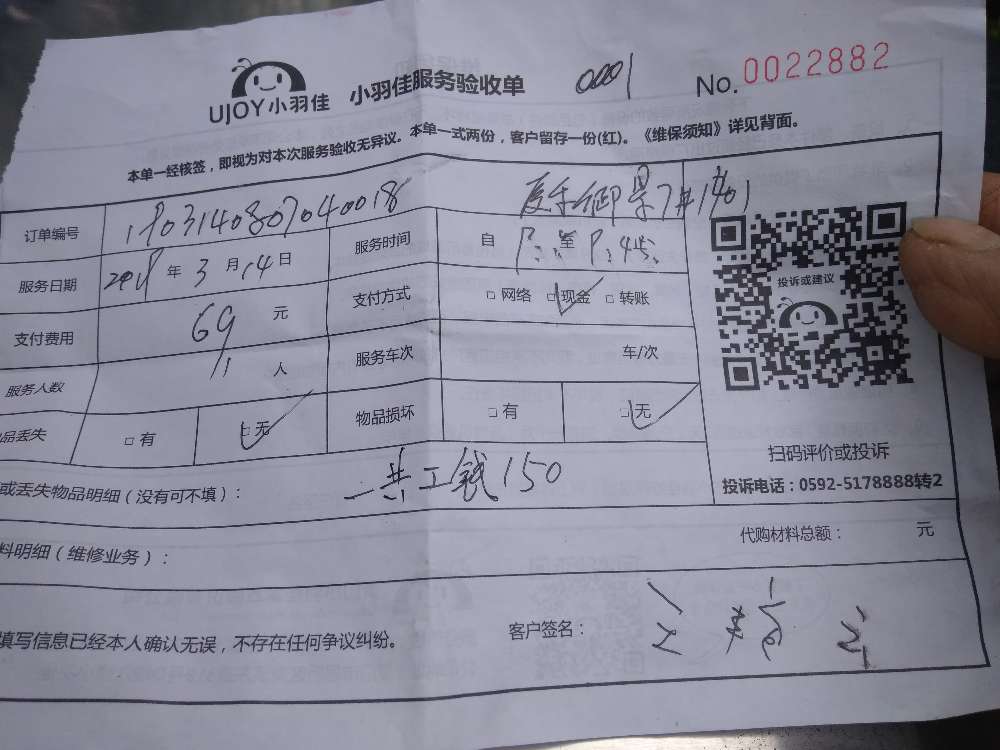 UJOY小羽佳 小羽佳服务验收单 0001 No.0022882
本单一经核签，即视为对本次服务验收无异议。本单一式两份，客户留存一份(红)。《维保须知》详见背面。
订单编号
服务日期 年 3 月 14 日 服务时间 自 至
支付费用 69 元 支付方式 □网络 □现金 □转账
服务人数 1 人 服务车次 车/次
品丢失 □有 □无 物品损坏 □有 □无
投诉或建议
扫码评价或投诉
投诉电话：0592-5178888转2
或丢失物品明细（没有可不填）： 一共工钱150
料明细（维修业务）： 代购材料总额： 元
填写信息已经本人确认无误，不存在任何争议纠纷。 客户签名：